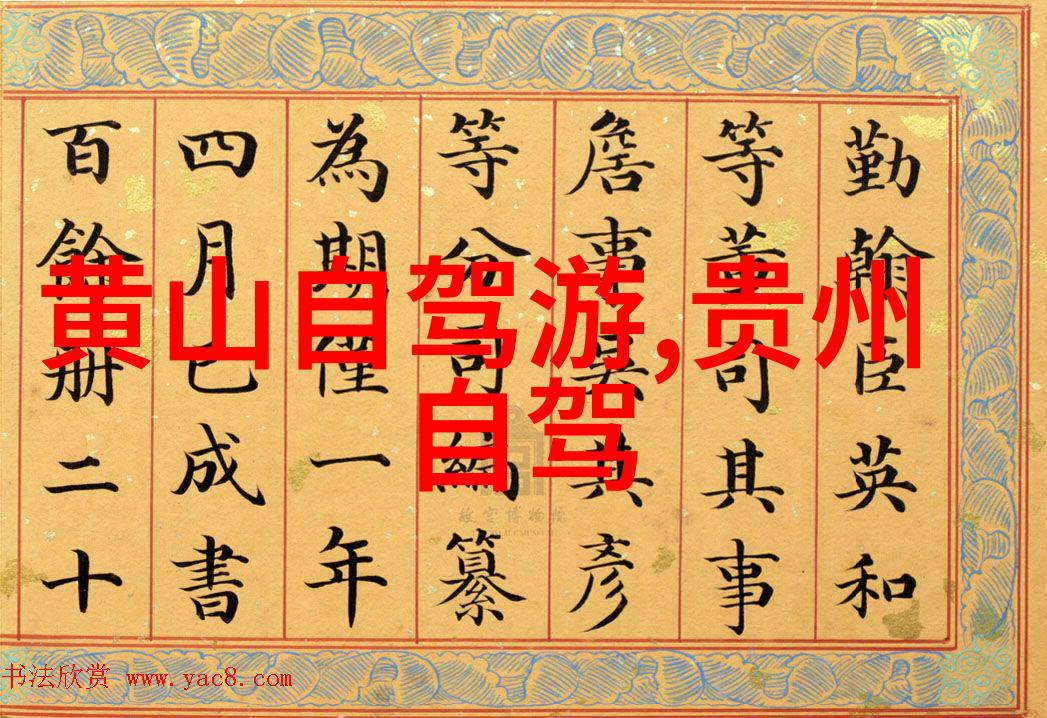 勤翰臣英和
等董司其事
詹事吳其彥
等分司編纂
為期僅一年
四月已成書
百餘冊二十
黄山自驾游,贵州
自驾
故宫博物院
书法欣赏 www.yac8.com